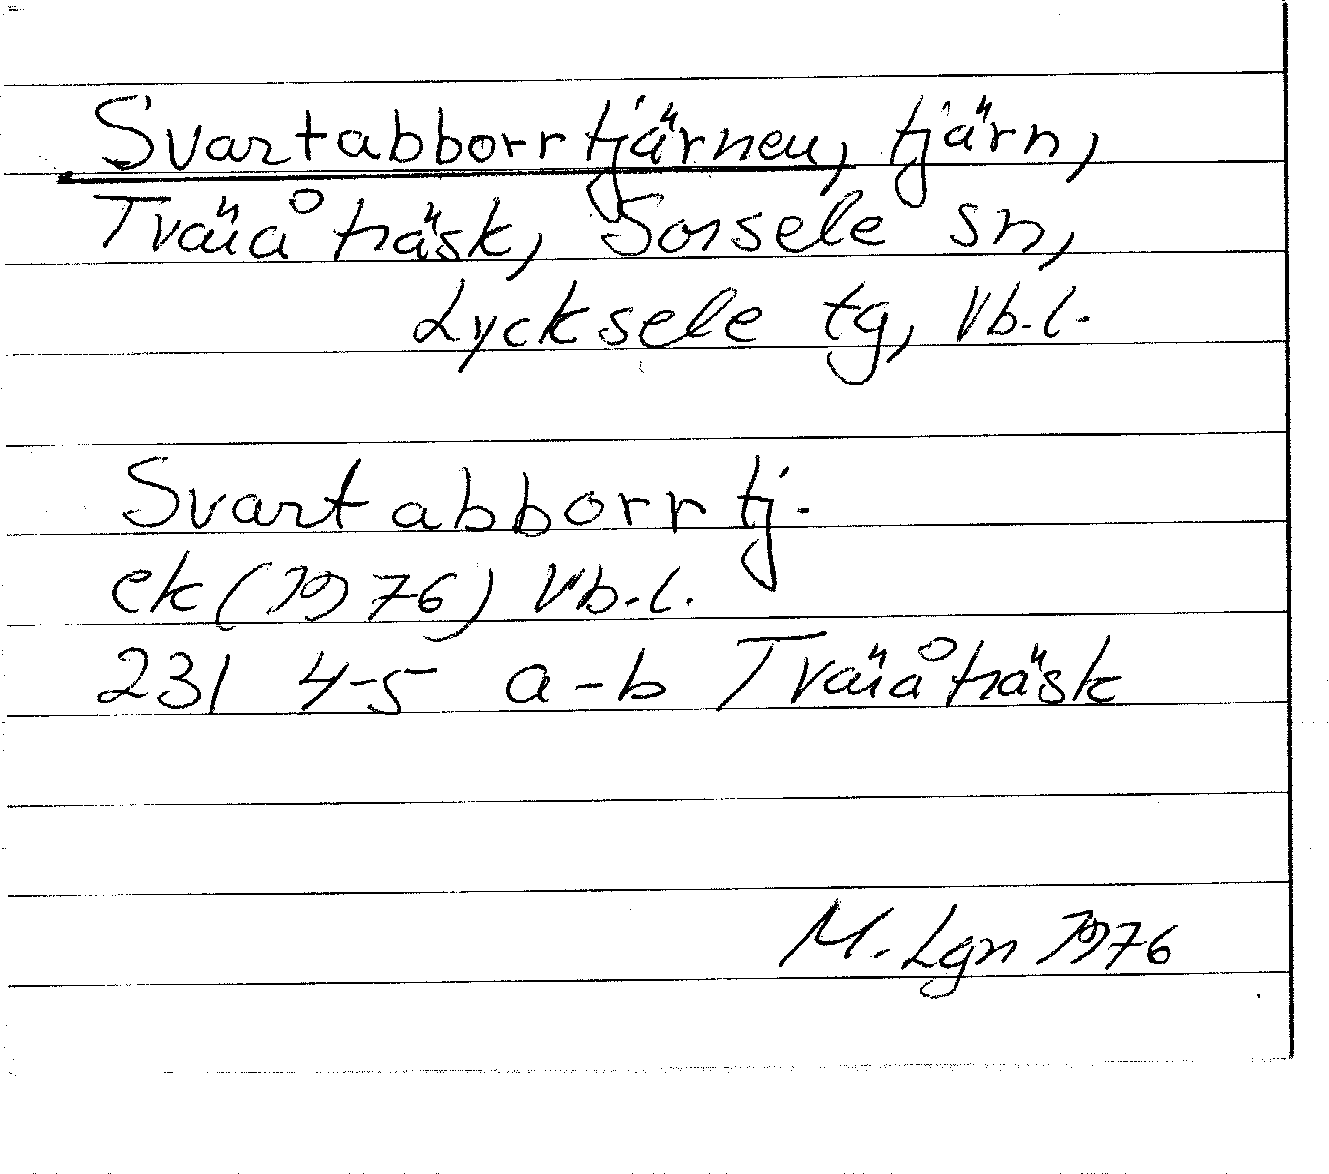 Svartabborrtjärnen, tjärn,
Tväråträsk, Sorsele sn,
Lycksele tg, Vb.l.
Svartabborrtj.
ek (1976) Vb.l.
231 4-5 a-b Tväråträsk
M. Lgn 1976